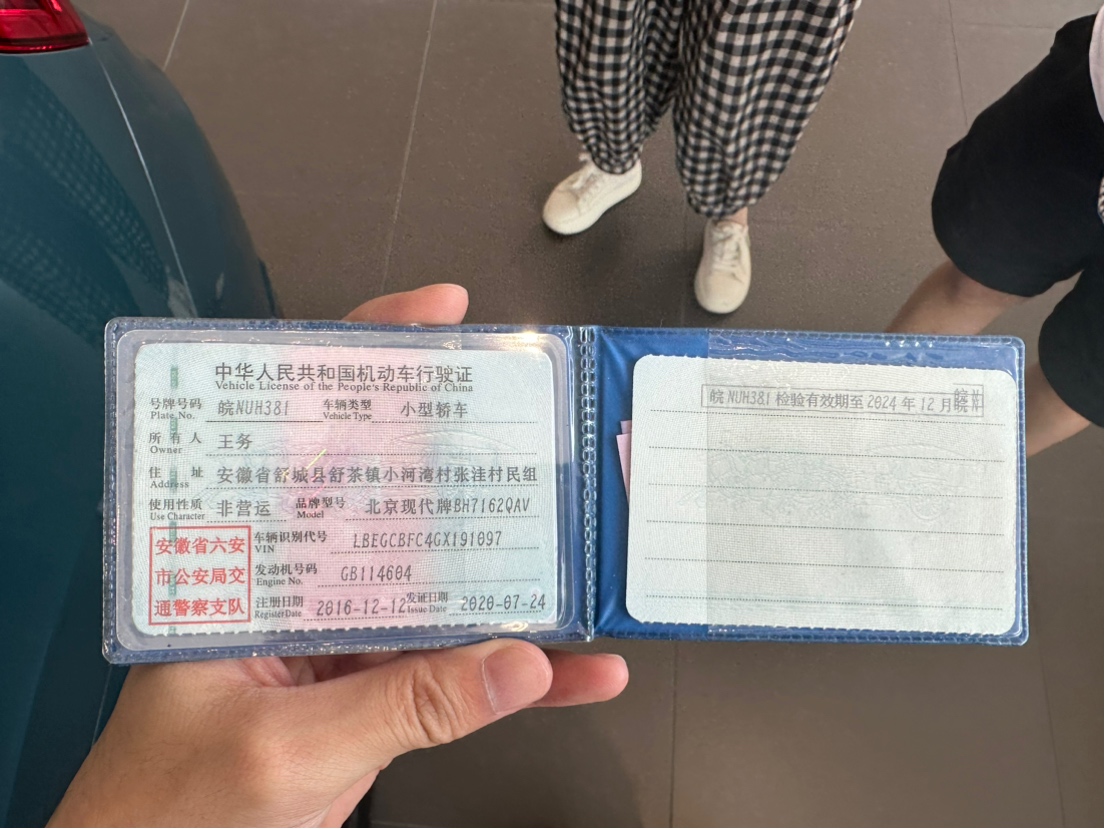 中华人民共和国机动车行驶证
Vehicle License of the People's Republic of China
号牌号码 皖NUH381 车辆类型 小型轿车
Plate No. Vehicle Type
所有人 王务
Owner
住址 安徽省舒城县舒茶镇小河湾村张洼村民组
Address
使用性质 非营运 品牌型号 北京现代牌BH7162QAV
Use Character Model
安徽省六安
市公安局交
通警察支队
车辆识别代号 LBEGCBFC4GX191097
VIN
发动机号码 GB114604
Engine No.
注册日期 2016-12-12 发证日期 2020-07-24
Register Date Issue Date
皖NUH381 检验有效期至 2024 年 12 月 皖N